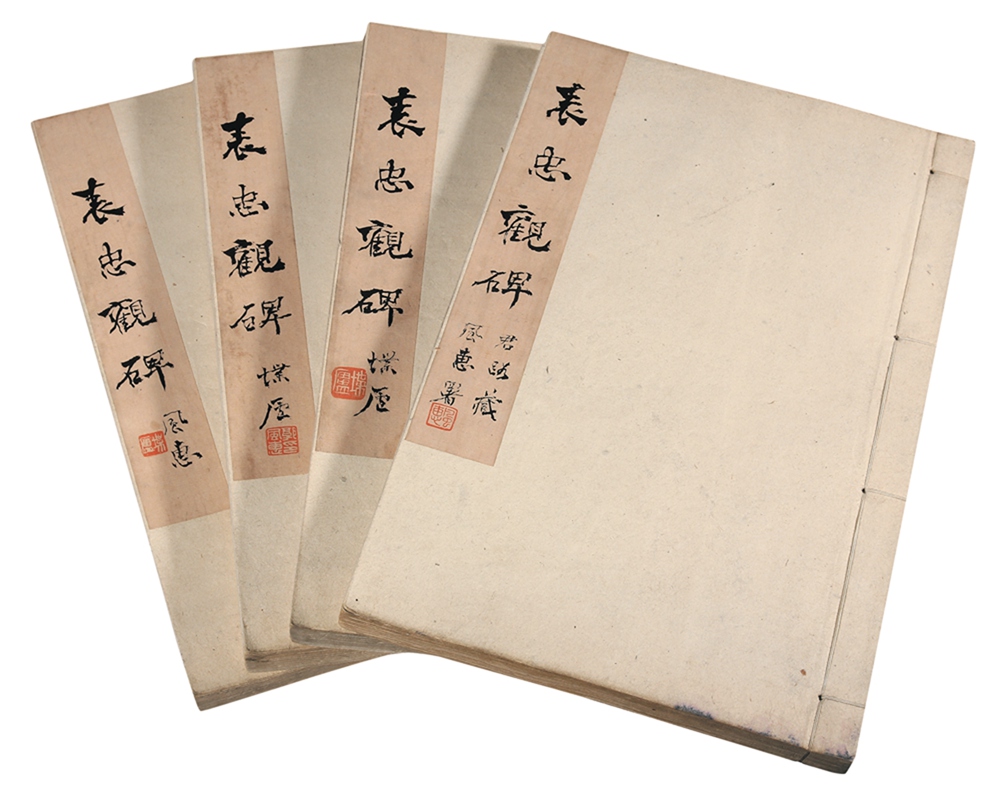 表忠觀碑
君潞藏
風惠署
表忠觀碑
慄廬
表忠觀碑
慄廬
表忠觀碑
風惠